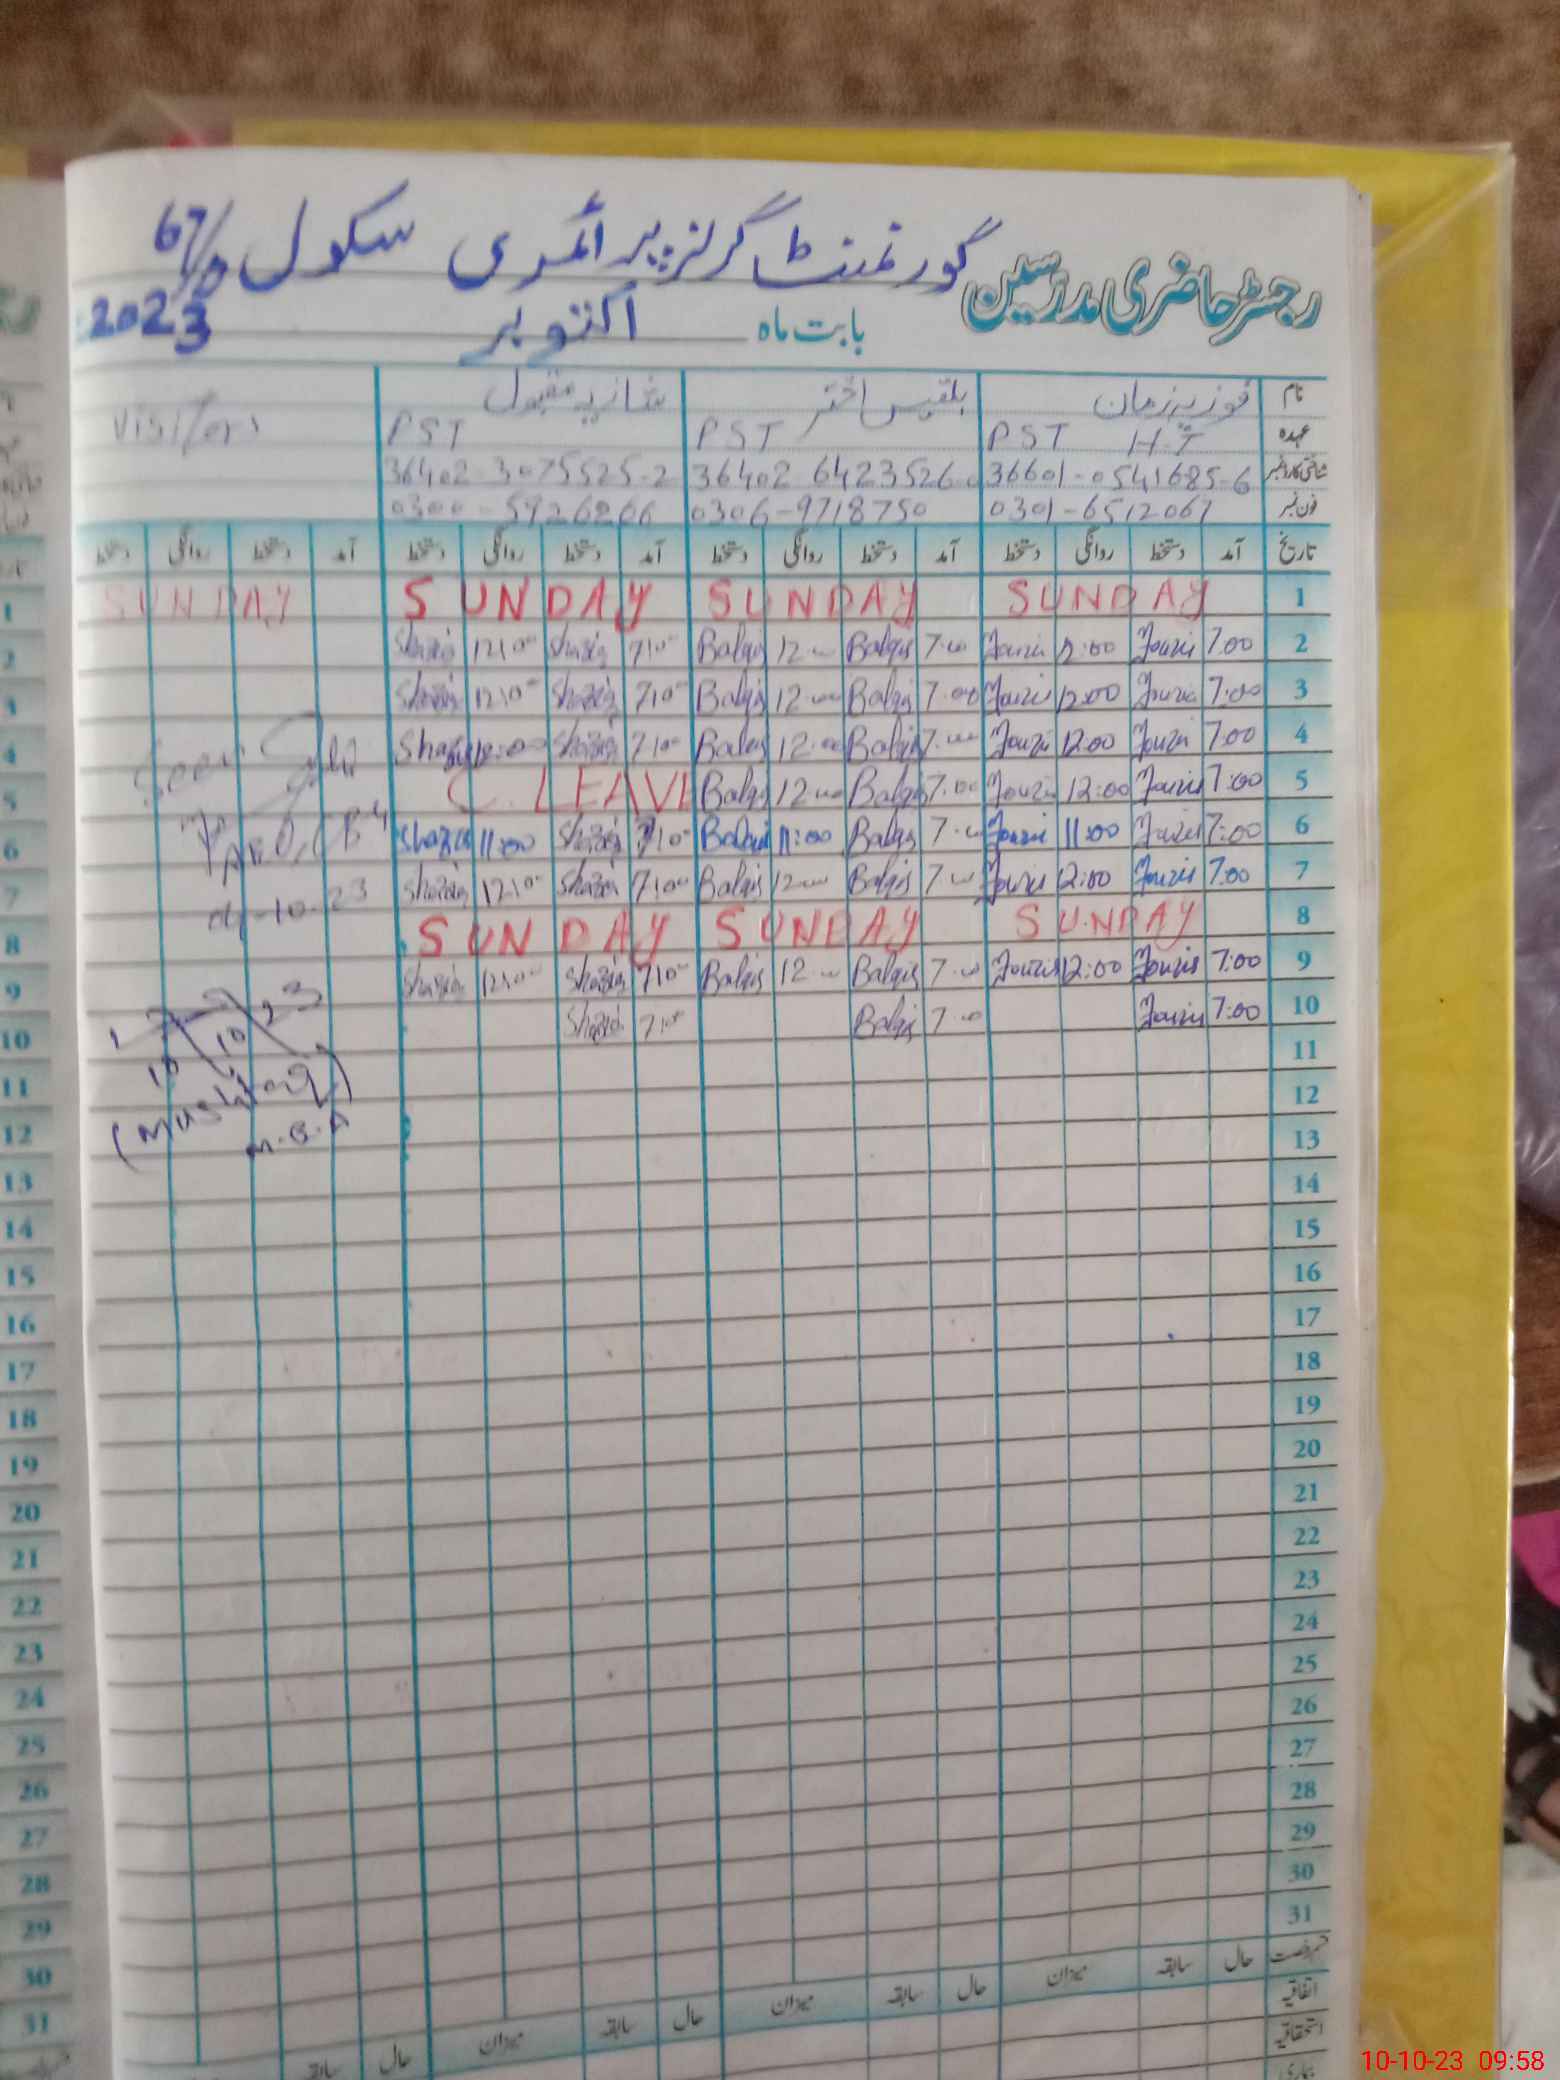 رجسٹر حاضری مدرسین گورنمنٹ گرلز پرائمری سکول 67/D
بابت ماہ اکتوبر 2023
نام فوزیہ زمان بلقیس اختر شازیہ مقبول Visitors
عہدہ PST H.T PST PST
شناختی کارڈ نمبر 36601-0541685-6 36402 6423526 36402-3075525-2
فون نمبر 0301-6512067 0306-9718750 0300-5926266
تاریخ آمد دستخط روانگی دستخط آمد دستخط روانگی دستخط آمد دستخط روانگی دستخط آمد دستخط روانگی دستخط
1 SUNDAY SUNDAY SUNDAY SUNDAY
2 7:00 Fouzia 12:00 Fouzia 7:00 Balqis 12:00 Balqis 7:00 Shazia 12:00 Shazia
3 7:00 Fouzia 12:00 Fouzia 7:00 Balqis 12:00 Balqis 7:00 Shazia 12:00 Shazia
4 7:00 Fouzia 12:00 Fouzia 7:00 Balqis 12:00 Balqis 7:00 Shazia 12:00 Shazia
5 7:00 Fouzia 12:00 Fouzia 7:00 Balqis 12:00 Balqis C. LEAVE
6 7:00 Fouzia 11:00 Fouzia 7:00 Balqis 11:00 Balqis 7:00 Shazia 11:00 Shazia
7 7:00 Fouzia 12:00 Fouzia 7:00 Balqis 12:00 Balqis 7:00 Shazia 12:00 Shazia
8 SUNDAY SUNDAY SUNDAY
9 7:00 Fouzia 12:00 Fouzia 7:00 Balqis 12:00 Balqis 7:00 Shazia 12:00 Shazia
10 7:00 Fouzia 7:00 Balqis 7:00 Shazia
11
12
13
14
15
16
17
18
19
20
21
22
23
24
25
26
27
28
29
30
31
Seen
04-10-23
10 10 23
(Mushtaq)
M.E.A
قسم رخصت حال سابقہ میزان حال سابقہ میزان حال سابقہ میزان حال سابقہ
اتفاقیہ
استحقاقیہ
بیماری
1
2
3
4
5
6
7
8
9
10
11
12
13
14
15
16
17
18
19
20
21
22
23
24
25
26
27
28
29
30
31
10-10-23 09:58